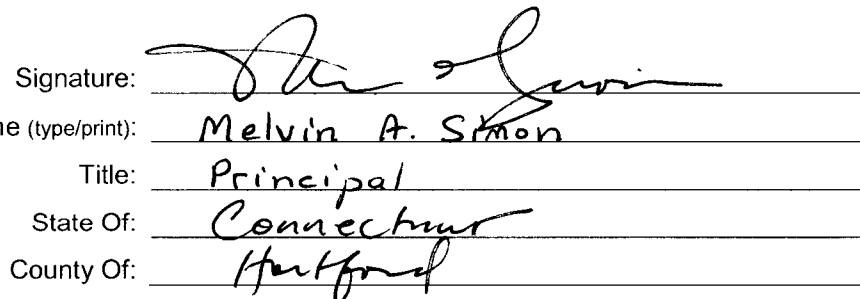 Signature:
ne (type/print): Melvin A. Simon
Title: Principal
State Of: Connecticut
County Of: Hartford